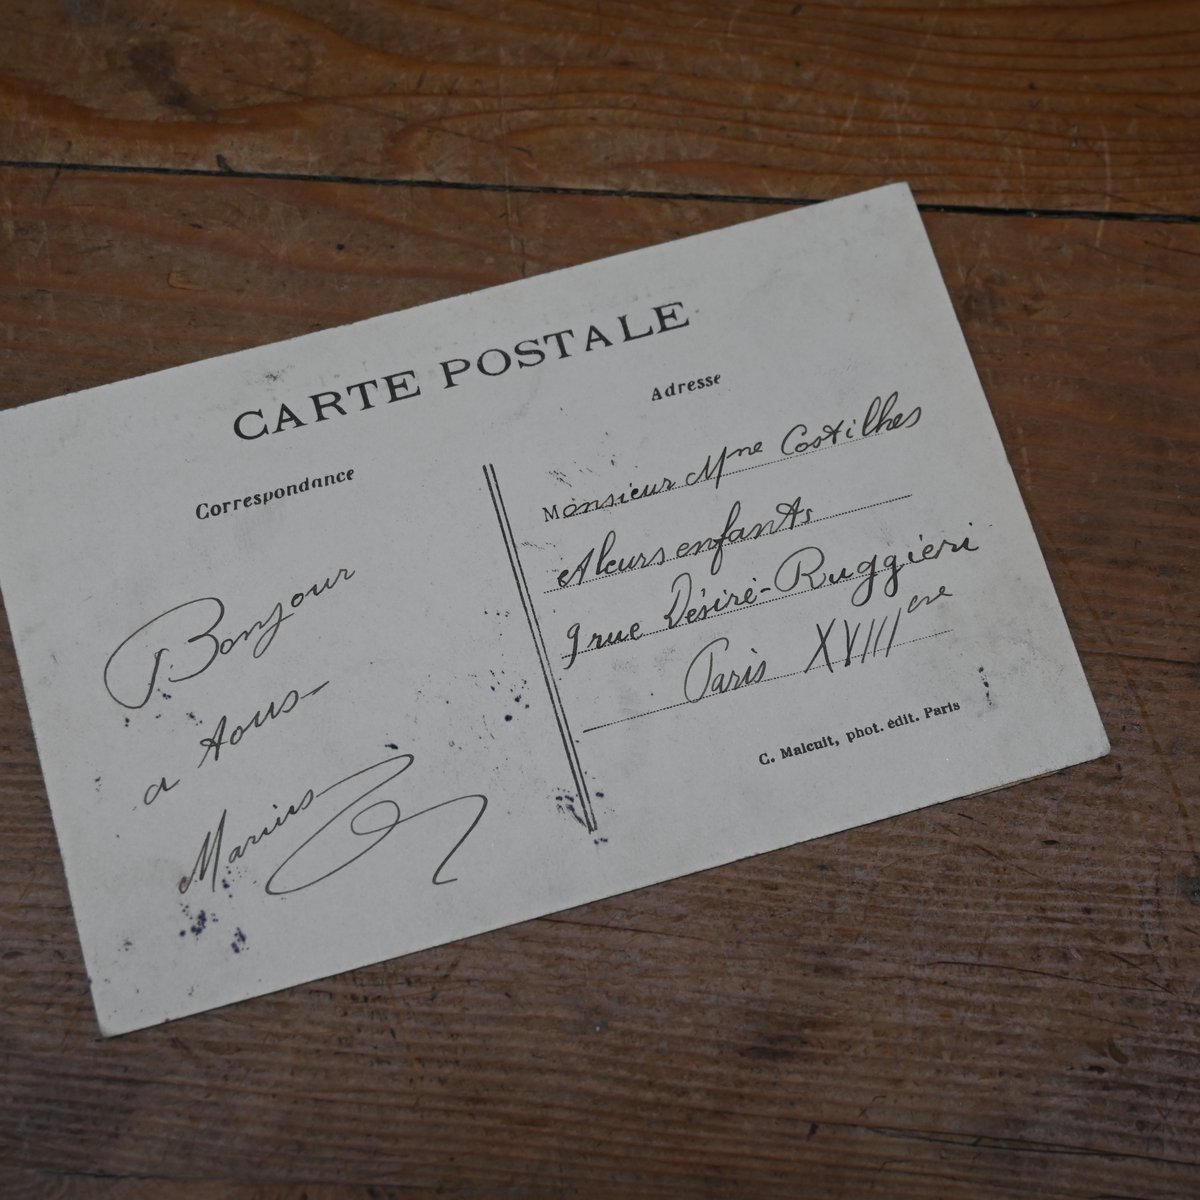 CARTE POSTALE
Correspondance
Bonjour
a tous—
Marius
Adresse
Monsieur Mme Costilhes
et leurs enfants
9 rue Désiré-Ruggieri
Paris XVIIIeme
C. Malcuit, phot. édit. Paris